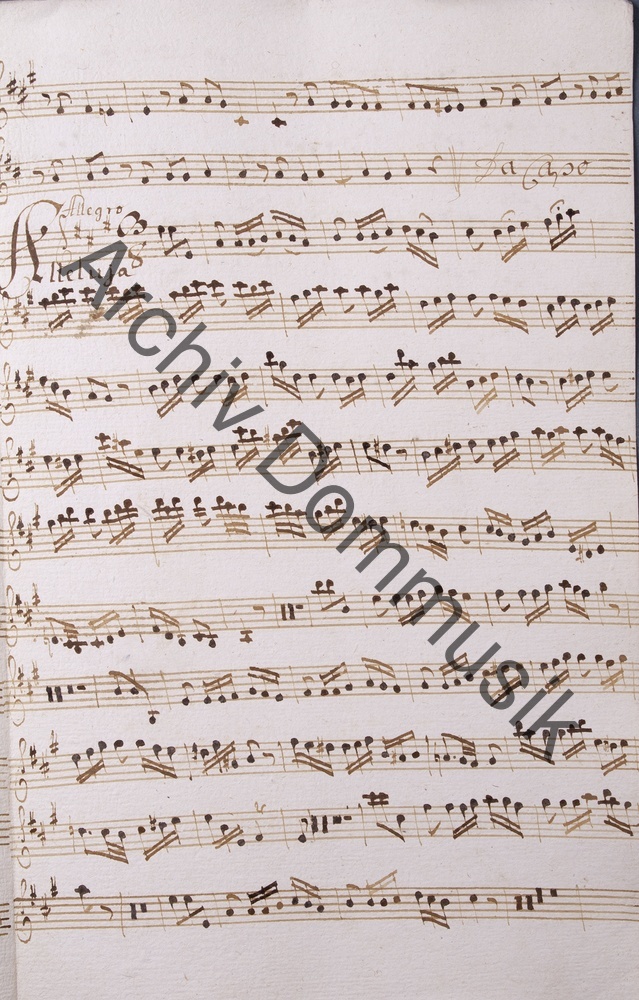 Da Capo
Allegro
Alleluja
Archiv Dommusik